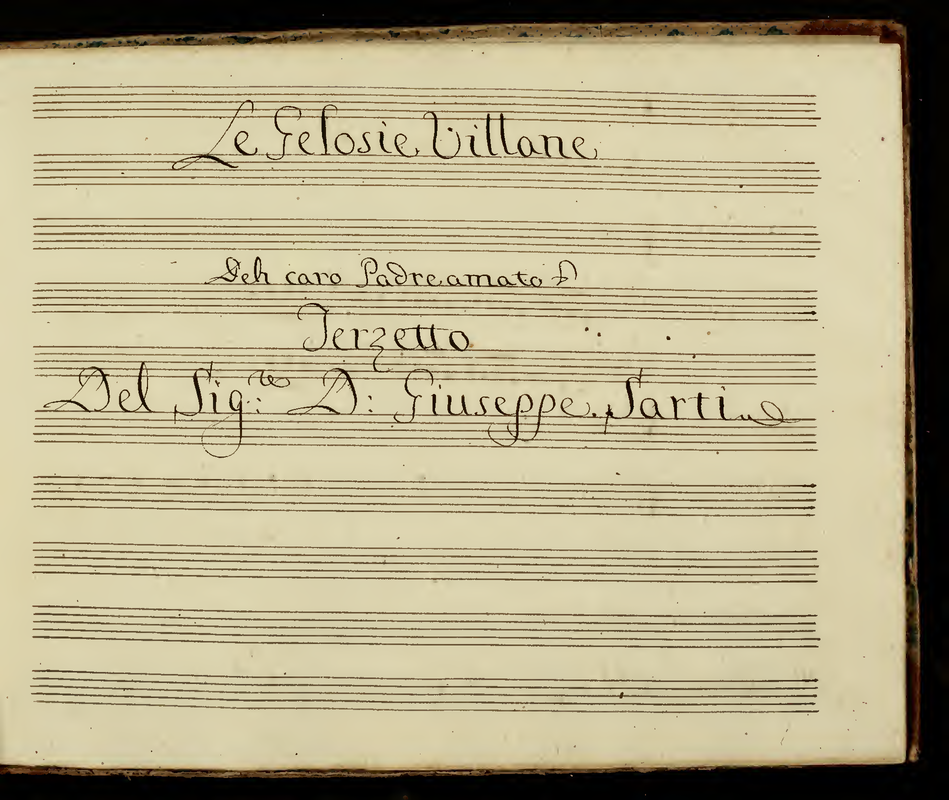 Le Gelosie Villane
Deh caro Padre amato
Terzetto
Del Sig:re D: Giuseppe Sarti